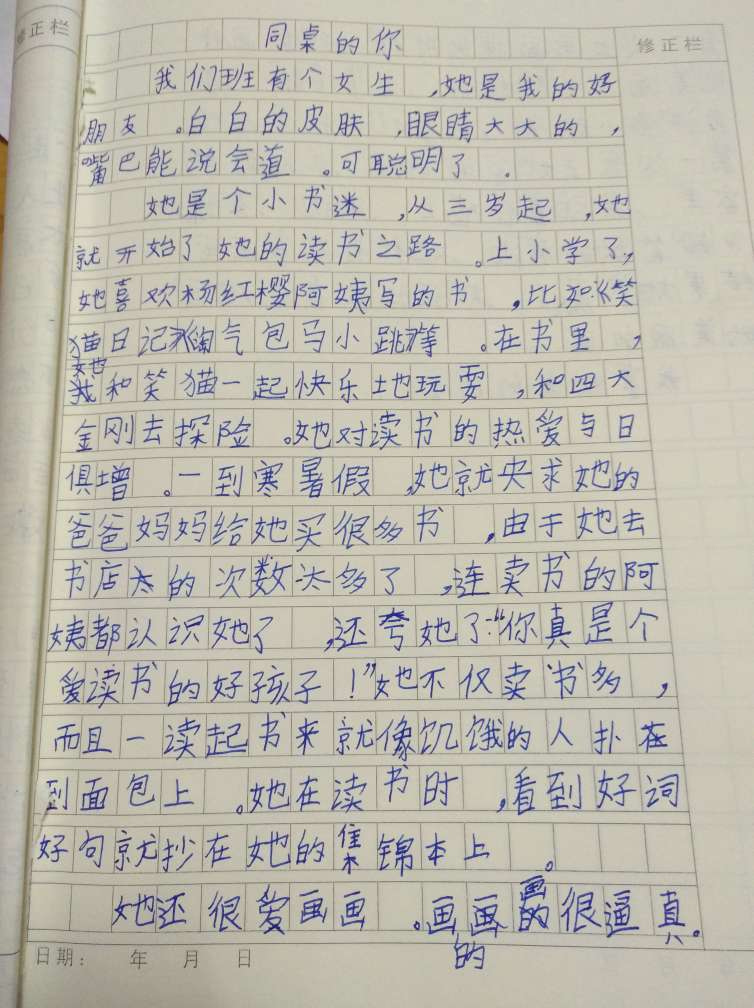 修正栏
同桌的你
修正栏
我们班有个女生，她是我的好
朋友。白白的皮肤，眼睛大大的，
嘴巴能说会道。可聪明了.
她是个小书迷，从三岁起，她
就开始了她的读书之路。上小学了，
她喜欢杨红樱阿姨写的书，比如：《笑
猫日记》《淘气包马小跳》等。在书里，
她和笑猫一起快乐地玩耍，和四大
金刚去探险。她对读书的热爱与日
俱增。一到寒暑假，她就央求她的
爸爸妈妈给她买很多书，由于她去
书店的次数太多了，连卖书的阿
姨都认识她了，还夸她了：“你真是个
爱读书的好孩子！”她不仅卖书多，
而且一读起书来就像饥饿的人扑在
到面包上。她在读书时，看到好词
好句就抄在她的集锦本上。
她还很爱画画。画画的很逼真。
的
日期： 年 月 日